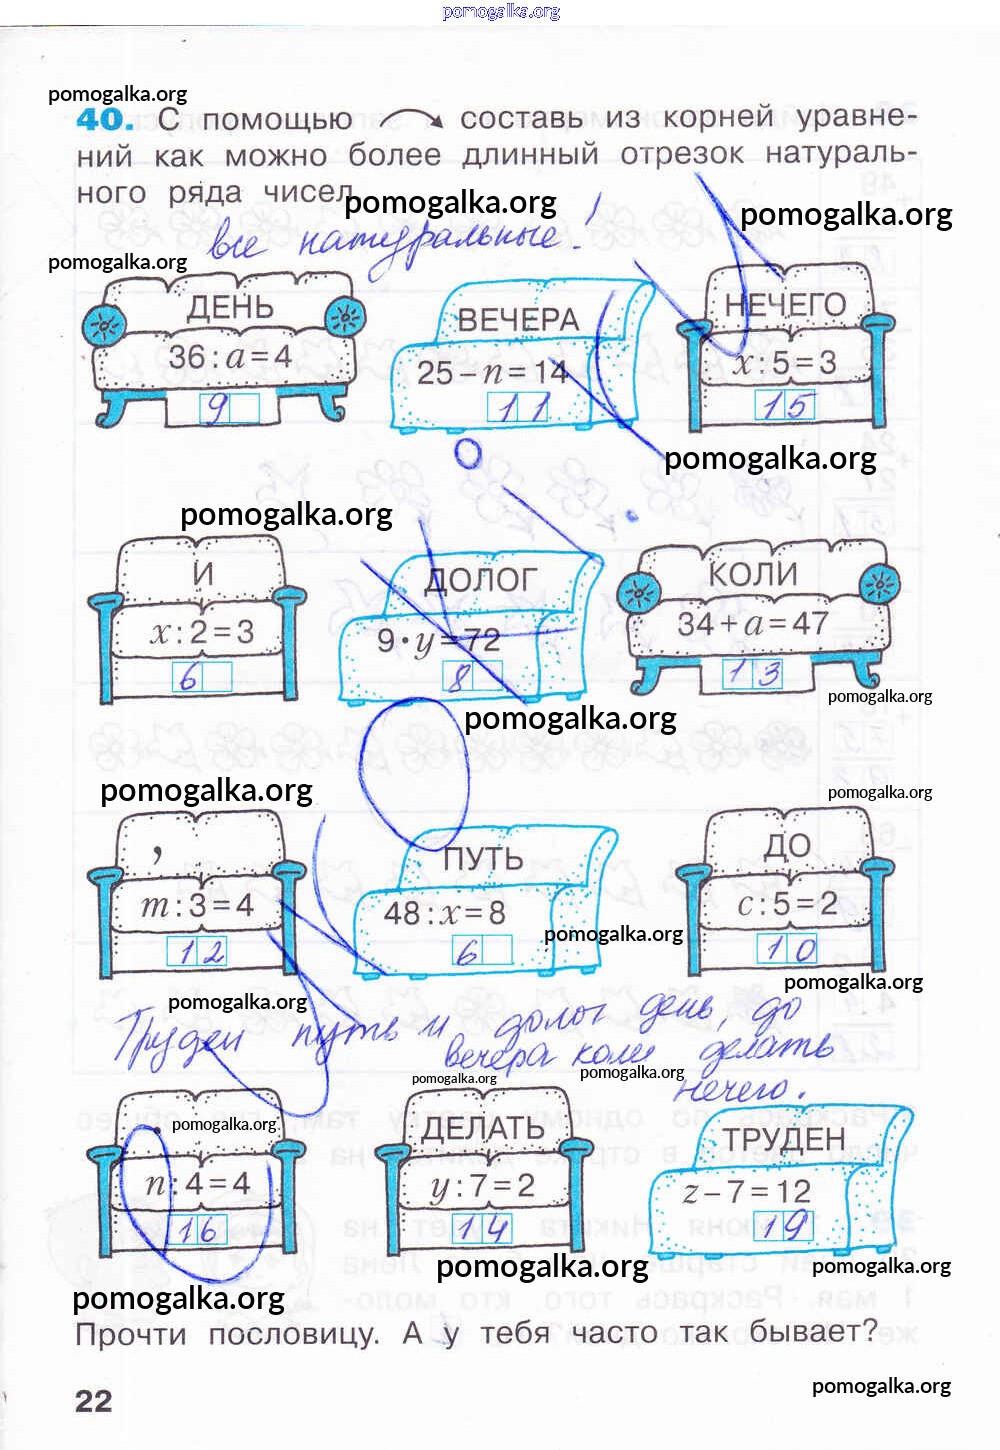 pomogalka.org
pomogalka.org
40. С помощью составь из корней уравне-
ний как можно более длинный отрезок натураль-
ного ряда чисел.
pomogalka.org
pomogalka.org
все натуральные!
pomogalka.org
ДЕНЬ
36 : a = 4
9
ВЕЧЕРА
25 – n = 14
11
НЕЧЕГО
x : 5 = 3
15
pomogalka.org
pomogalka.org
И
x : 2 = 3
6
ДОЛОГ
9 · y = 72
8
КОЛИ
34 + a = 47
13
pomogalka.org
pomogalka.org
pomogalka.org
pomogalka.org
,
m : 3 = 4
12
ПУТЬ
48 : x = 8
6
ДО
c : 5 = 2
10
pomogalka.org
pomogalka.org
pomogalka.org
Труден путь и долог день, до
вечера коли делать
нечего.
pomogalka.org
pomogalka.org
pomogalka.org
.
n : 4 = 4
16
ДЕЛАТЬ
y : 7 = 2
14
ТРУДЕН
z – 7 = 12
19
pomogalka.org
pomogalka.org
pomogalka.org
Прочти пословицу. А у тебя часто так бывает?
22
pomogalka.org